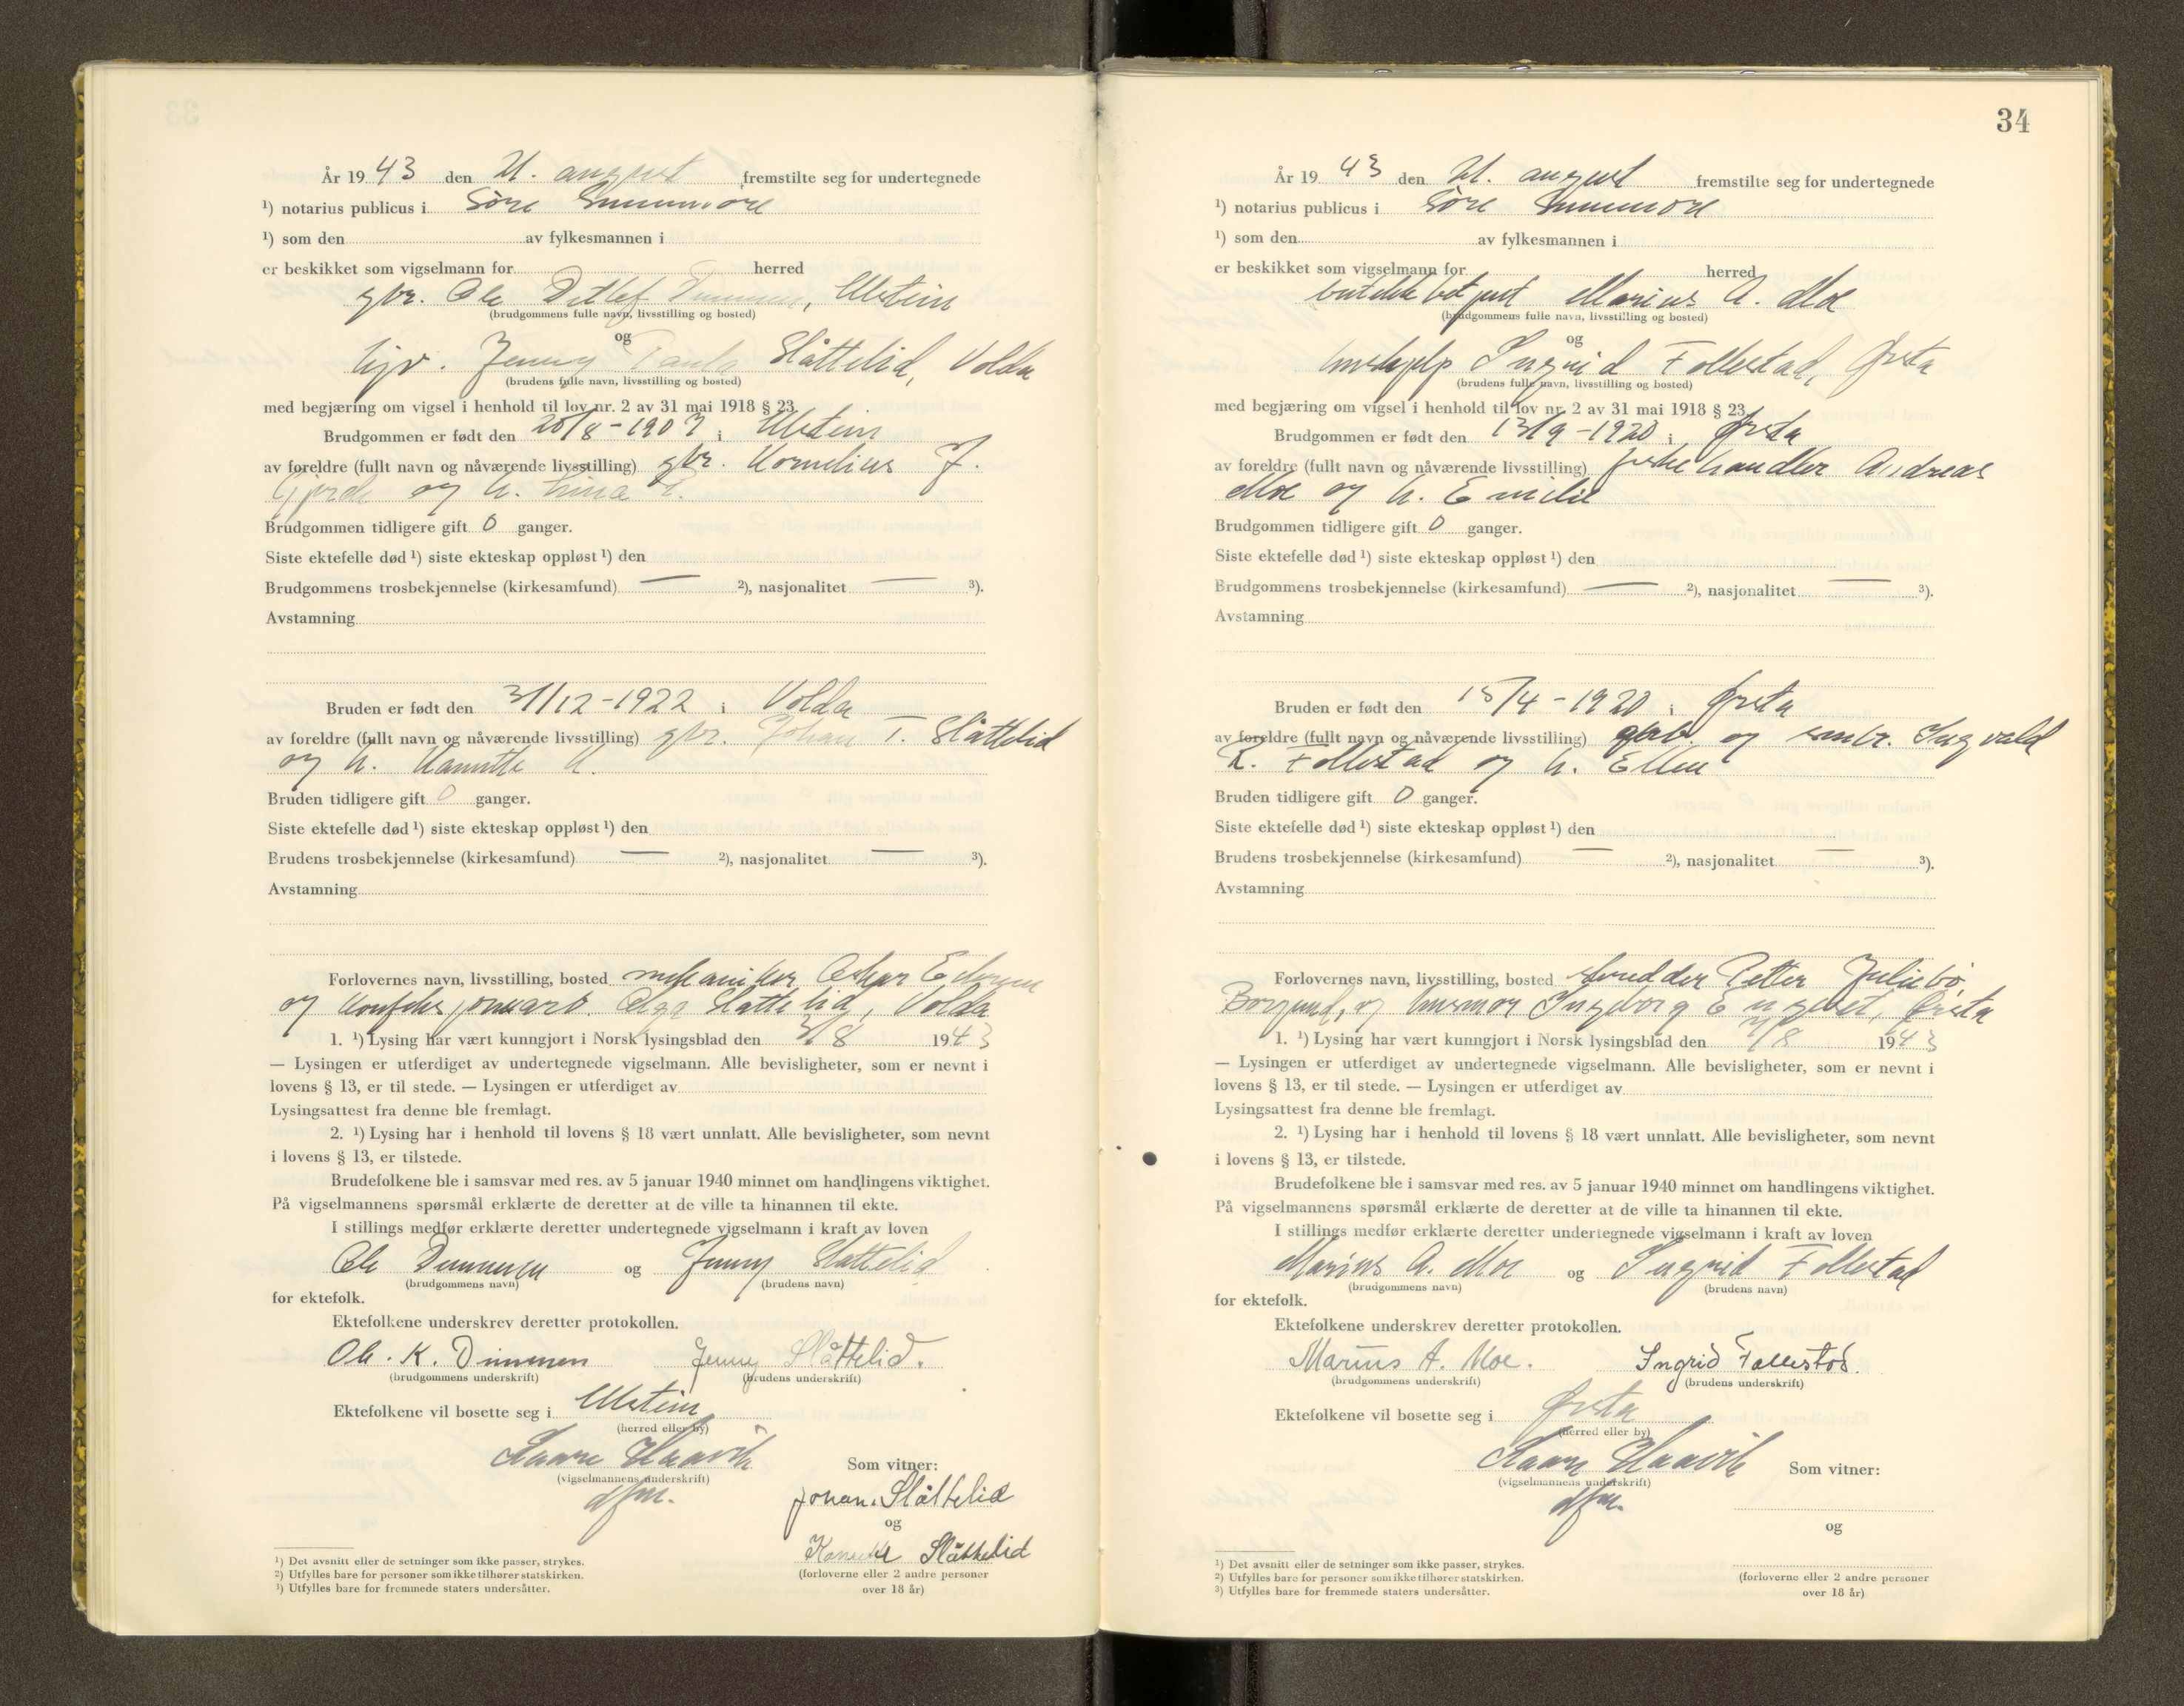 År 19 43 den 21. august fremstilte seg for undertegnede
¹) notarius publicus i Søre Sunnmøre
¹) som den av fylkesmannen i
er beskikket som vigselmann for herred
gbr. Ole Detlef Dimmen, Ulstein
(brudgommens fulle navn, livsstilling og bosted)
og
hjv. Jenny Paula Slåttelid, Volda
(brudens fulle navn, livsstilling og bosted)
med begjæring om vigsel i henhold til lov nr. 2 av 31 mai 1918 § 23.
Brudgommen er født den 20/8-1907 i Ulstein
av foreldre (fullt navn og nåværende livsstilling) gbr. Kornelius J.
Gjerde og h. Lina
Brudgommen tidligere gift 0 ganger.
Siste ektefelle død ¹) siste ekteskap oppløst ¹) den
Brudgommens trosbekjennelse (kirkesamfund) — ²), nasjonalitet — ³).
Avstamning
Bruden er født den 31/12-1922 i Volda
av foreldre (fullt navn og nåværende livsstilling) gbr. Johan T. Slåttelid
og h. Kanutte K.
Bruden tidligere gift 0 ganger.
Siste ektefelle død ¹) siste ekteskap oppløst ¹) den
Brudens trosbekjennelse (kirkesamfund) — ²), nasjonalitet — ³).
Avstamning
Forlovernes navn, livsstilling, bosted mekaniker Oskar
og konfeksjonsarb. Olga Slåttelid, Volda
1. ¹) Lysing har vært kunngjort i Norsk lysingsblad den 3/8 1943
— Lysingen er utferdiget av undertegnede vigselmann. Alle bevisligheter, som er nevnt i
lovens § 13, er til stede. — Lysingen er utferdiget av
Lysingsattest fra denne ble fremlagt.
2. ¹) Lysing har i henhold til lovens § 18 vært unnlatt. Alle bevisligheter, som nevnt
i lovens § 13, er tilstede.
Brudefolkene ble i samsvar med res. av 5 januar 1940 minnet om handlingens viktighet.
På vigselmannens spørsmål erklærte de deretter at de ville ta hinannen til ekte.
I stillings medfør erklærte deretter undertegnede vigselmann i kraft av loven
Ole Dimmen og Jenny Slåttelid
(brudgommens navn) (brudens navn)
for ektefolk.
Ektefolkene underskrev deretter protokollen.
Ole. K. Dimmen Jenny Slåttelid.
(brudgommens underskrift) (brudens underskrift)
Ektefolkene vil bosette seg i Ulstein
(herred eller by)
Kaare Haavik
(vigselmannens underskrift)
dfm.
Som vitner:
Johan. Slåttelid
og
Kanutte Slåttelid
(forloverne eller 2 andre personer
over 18 år)
¹) Det avsnitt eller de setninger som ikke passer, strykes.
²) Utfylles bare for personer som ikke tilhører statskirken.
³) Utfylles bare for fremmede staters undersåtter.
34
År 19 43 den 21. august fremstilte seg for undertegnede
¹) notarius publicus i Søre Sunnmøre
¹) som den av fylkesmannen i
er beskikket som vigselmann for herred
Marius A. Moe
(brudgommens fulle navn, livsstilling og bosted)
og
hushjelp Ingrid Follestad, Ørsta
(brudens fulle navn, livsstilling og bosted)
med begjæring om vigsel i henhold til lov nr. 2 av 31 mai 1918 § 23.
Brudgommen er født den 13/9-1920 i Ørsta
av foreldre (fullt navn og nåværende livsstilling) fiskehandler Andreas
Moe og h. Emilie
Brudgommen tidligere gift 0 ganger.
Siste ektefelle død ¹) siste ekteskap oppløst ¹) den
Brudgommens trosbekjennelse (kirkesamfund) — ²), nasjonalitet — ³).
Avstamning
Bruden er født den 15/4-1920 i Ørsta
av foreldre (fullt navn og nåværende livsstilling) gbr. og Ingvald
R. Follestad og h. Ellen
Bruden tidligere gift 0 ganger.
Siste ektefelle død ¹) siste ekteskap oppløst ¹) den
Brudens trosbekjennelse (kirkesamfund) — ²), nasjonalitet — ³).
Avstamning
Forlovernes navn, livsstilling, bosted skredder Petter Juliebø,
Borgund, og husmor Ingeborg Engeset, Ørsta
1. ¹) Lysing har vært kunngjort i Norsk lysingsblad den /8 1943
— Lysingen er utferdiget av undertegnede vigselmann. Alle bevisligheter, som er nevnt i
lovens § 13, er til stede. — Lysingen er utferdiget av
Lysingsattest fra denne ble fremlagt.
2. ¹) Lysing har i henhold til lovens § 18 vært unnlatt. Alle bevisligheter, som nevnt
i lovens § 13, er tilstede.
Brudefolkene ble i samsvar med res. av 5 januar 1940 minnet om handlingens viktighet.
På vigselmannens spørsmål erklærte de deretter at de ville ta hinannen til ekte.
I stillings medfør erklærte deretter undertegnede vigselmann i kraft av loven
Marius A. Moe og Ingrid Follestad
(brudgommens navn) (brudens navn)
for ektefolk.
Ektefolkene underskrev deretter protokollen.
Marius A. Moe. Ingrid Follestad.
(brudgommens underskrift) (brudens underskrift)
Ektefolkene vil bosette seg i Ørsta
(herred eller by)
Kaare Haavik
(vigselmannens underskrift)
dfm.
Som vitner:
og
(forloverne eller 2 andre personer
over 18 år)
¹) Det avsnitt eller de setninger som ikke passer, strykes.
²) Utfylles bare for personer som ikke tilhører statskirken.
³) Utfylles bare for fremmede staters undersåtter.